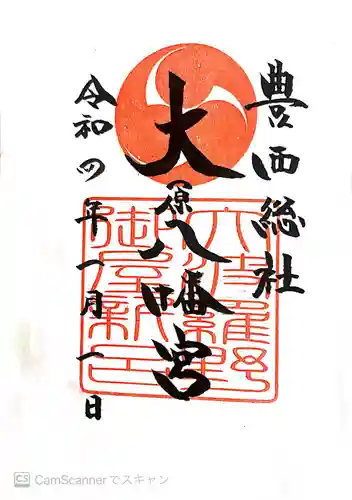 豊西総社
大原八幡宮
令和四年一月一日
CS CamScannerでスキャン